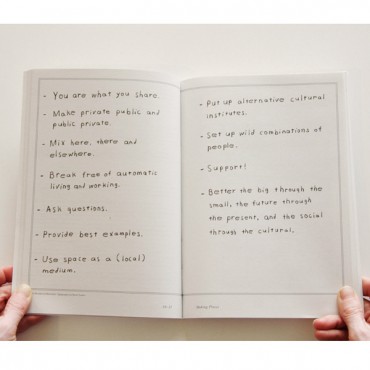 - You are what you share.
- Make private public and
public private.
- Mix here, there and
elsewhere.
- Break free of automatic
living and working.
- Ask questions.
- Provide best examples.
- Use space as a (local)
medium.
- Put up alternative cultural
institutes.
- Set up wild combinations of
people.
- Support!
- Better the big through the
small, the future through
the present, and the social
through the cultural.